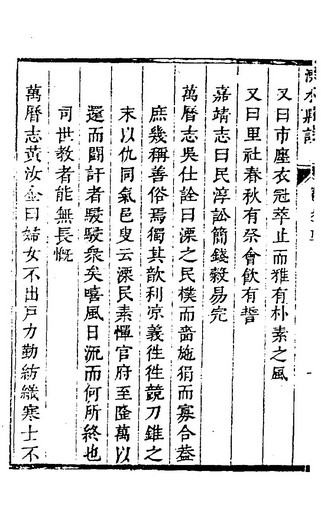 溧水縣志
又曰市廛衣冠萃止而雅有朴素之風
又曰里社春秋有祭會飲有誓
嘉靖志曰民淳訟簡錢穀易完
萬曆志吳仕詮曰溧之民樸而嗇施狷而寡合葢
庶幾稱善俗焉獨其歆利凉義徃徃競刀錐之
末以仇同氣邑叟云溧民素憚官府至隆萬以
還而鬭訐者駸駸矣嘻風日流而何所終也
司世教者能無長慨
萬曆志黃汝金曰婦女不出戶力勤紡織寒士不